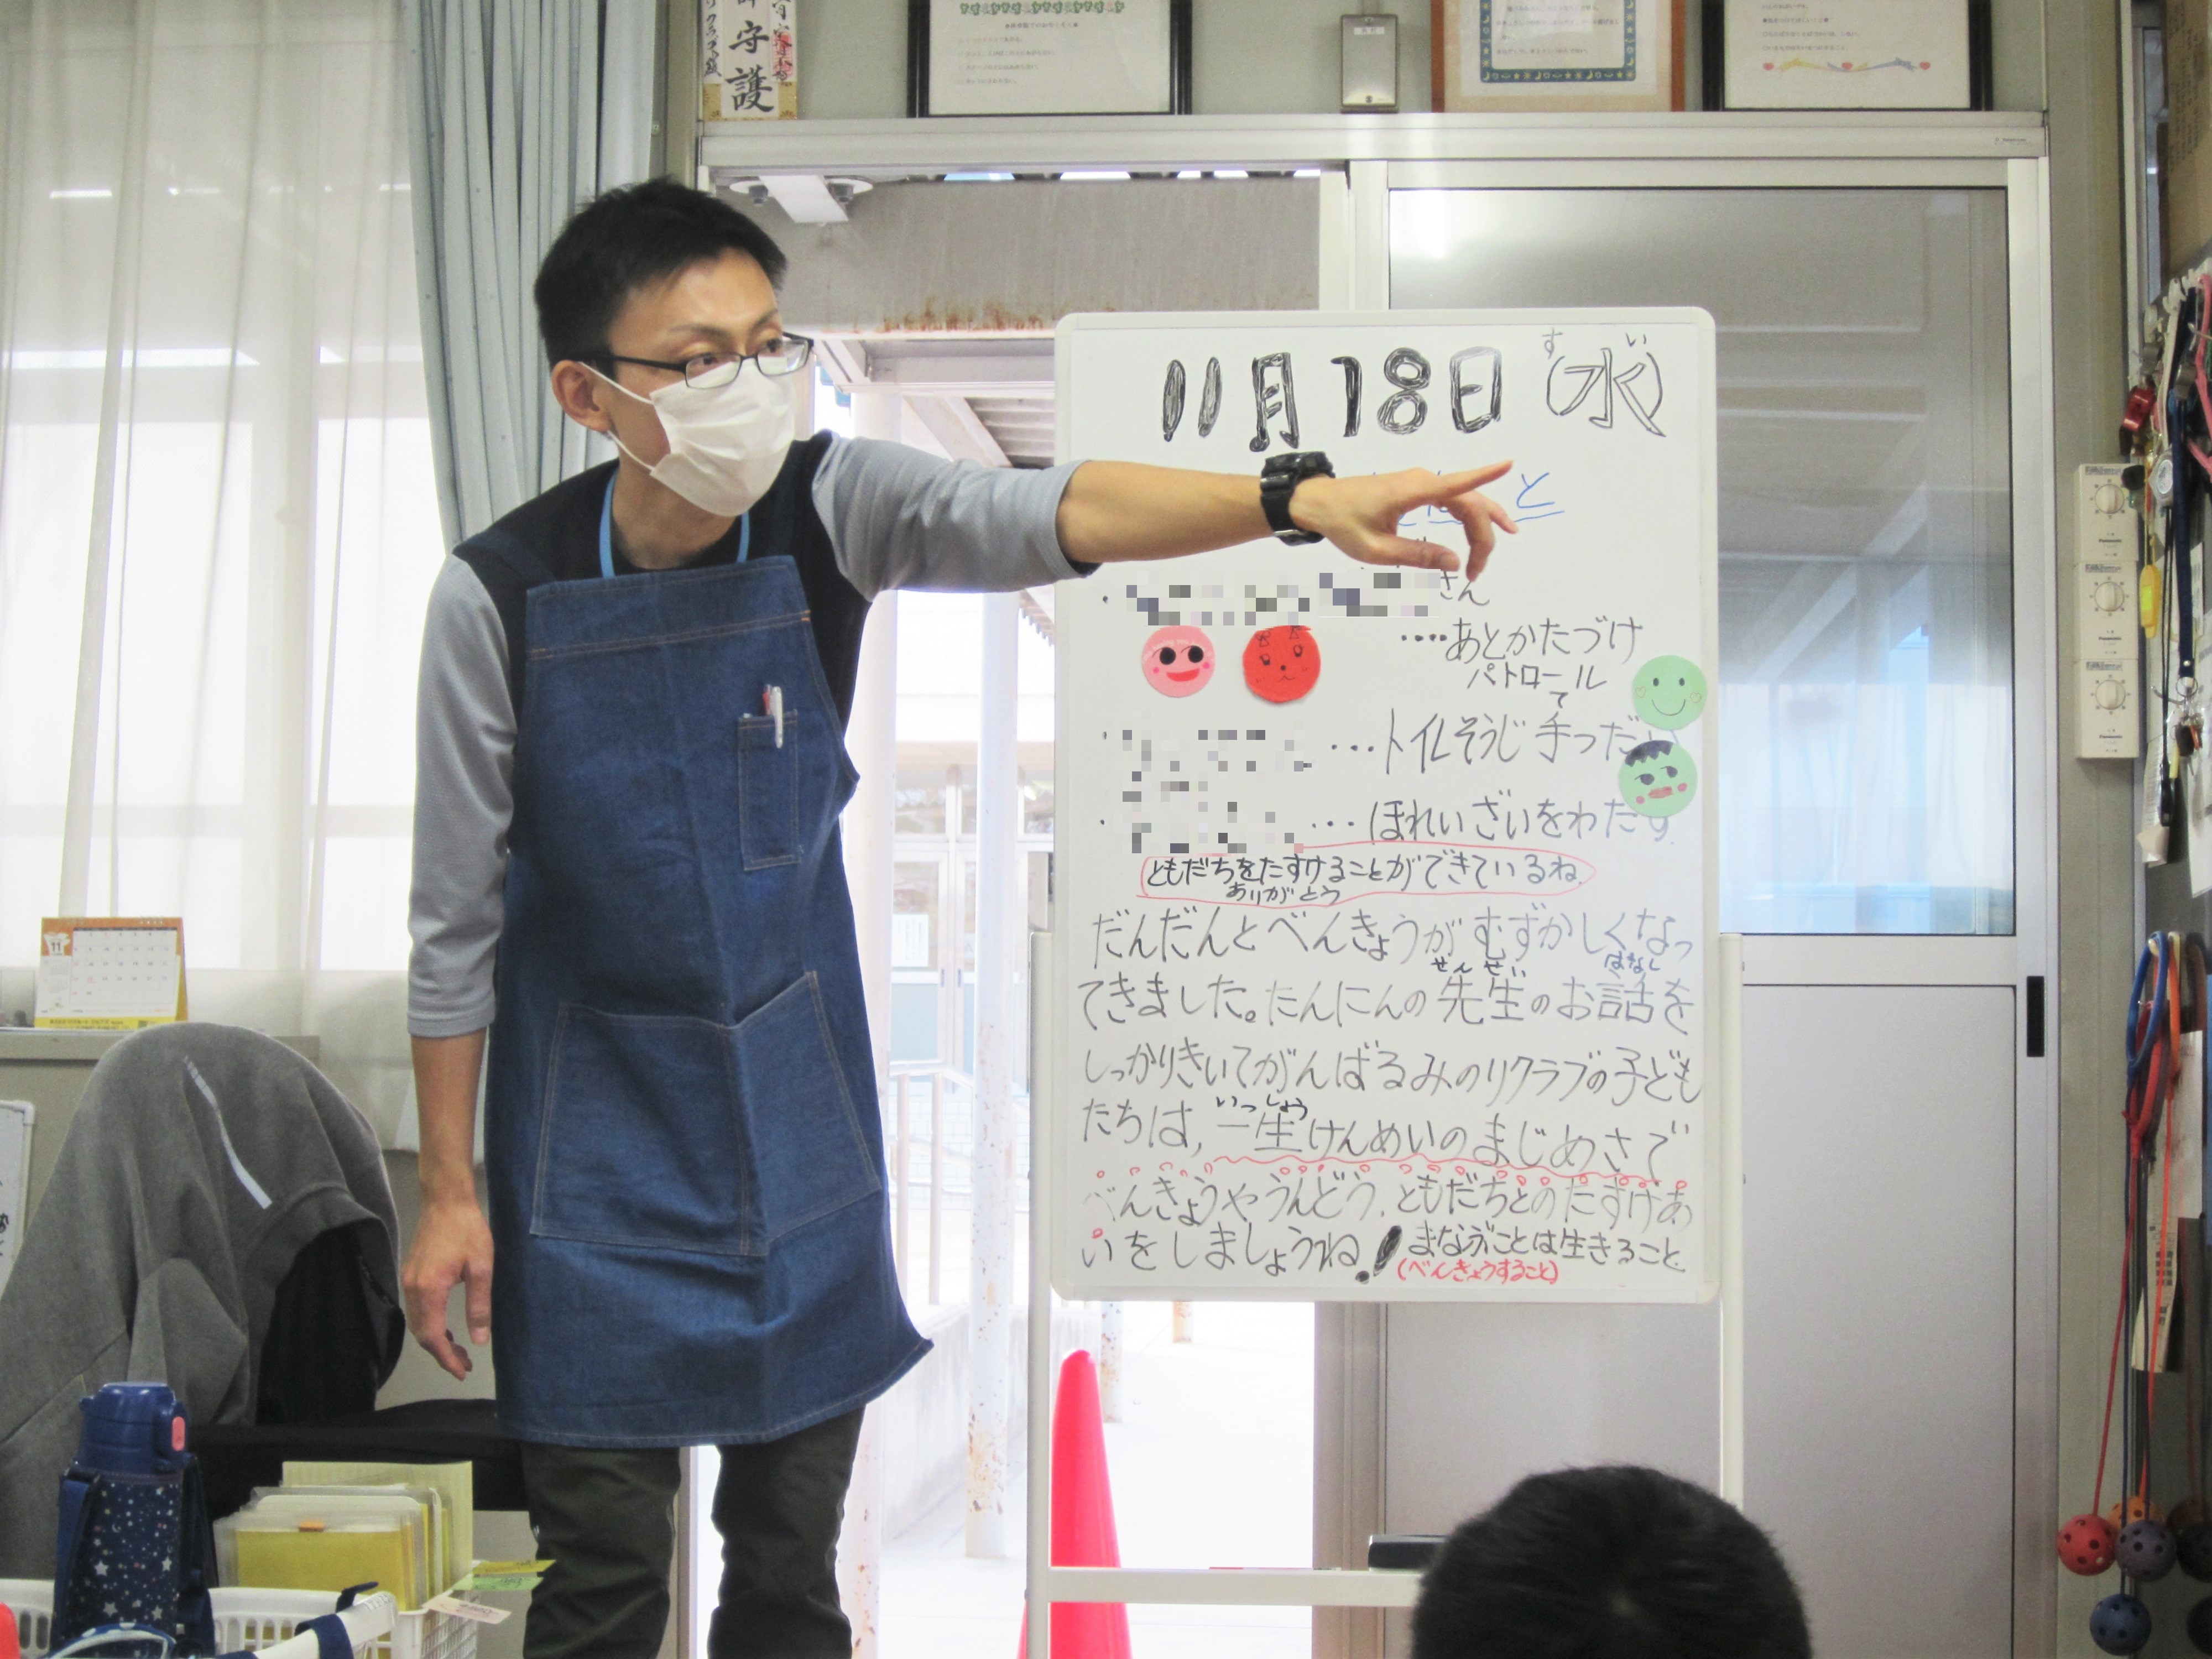 守護
11
11月18日(水)
すい
と
さん
····あとかたづけ
パトロール
て
···トイレそうじ 手つだ
···ほれいざいをわたす.
ともだちをたすけることができているね
ありがとう
だんだんとべんきょうがむずかしくなっ
せんせい はなし
てきました。たんにんの先生のお話を
しっかりきいてがんばるみのりクラブの子ども
いっしょう
たちは,一生けんめいのまじめさで
べんきょうやうんどう.ともだちとのたすけあ
いをしましょうね! まなぶことは生きること.
(べんきょうすること)